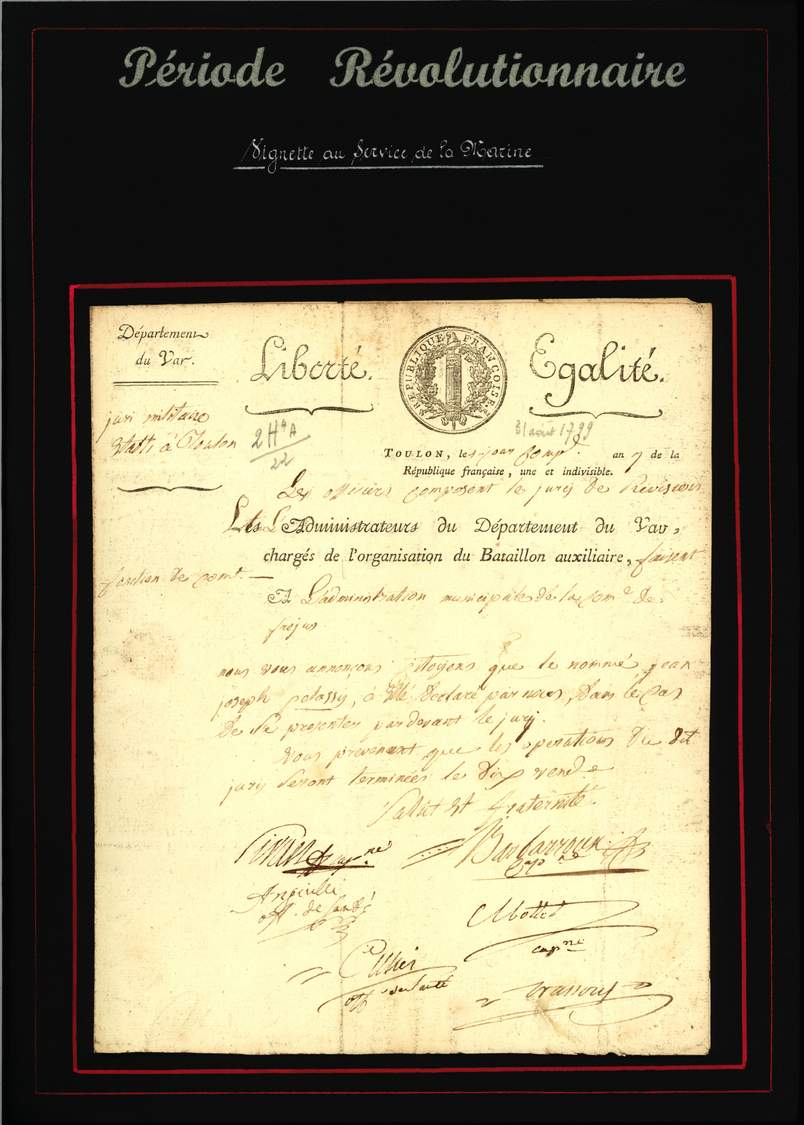 Période Révolutionnaire
Vignette au Service de la Marine
Département
du Var.
Liberté.
RÉPUBLIQUE FRANÇOISE.
Egalité.
juri militaire
à Toulon
2 H4A
22
31 août 1799
TOULON, le jour an 7 de la
République française, une et indivisible.
Les officiers composent le jury de Revision
Les Administrateurs du Département du Var,
chargés de l'organisation du Bataillon auxiliaire, faisant
fonction de
A L'administration municipale de la de
frejus
nous vous annonçons citoyens que le nommé jean
joseph pelassy, à été declaré par nous, dans le cas
De se presenter pardevant le jury.
Vous prévenant que les operations du dit
jury seront terminées le dix vend
Salut et fraternité.
Barbarroux
cap ne
off. de santé
Mottet
capne
off de santé